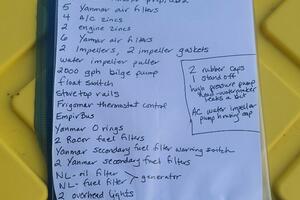 5 Yanmar air filters
4 A/C zincs
2 engine zincs
6 Yanmar air filters
2 Impellers, 2 impeller gaskets
water impeller puller
2000 gph bilge pump
float switch
Stovetop rails
Frigomar thermostat control
EmpirBus
Yanmar O rings
2 Racor fuel filters
Yanmar secondary fuel filter warning switch
2 Yanmar secondary fuel filters
NL- oil filter
NL- fuel filter > generator
2 overhead lights
2 rubber caps
1 stand off
high pressure pump
head watermaker
leaks a bit
AC water impeller
pump housing cap